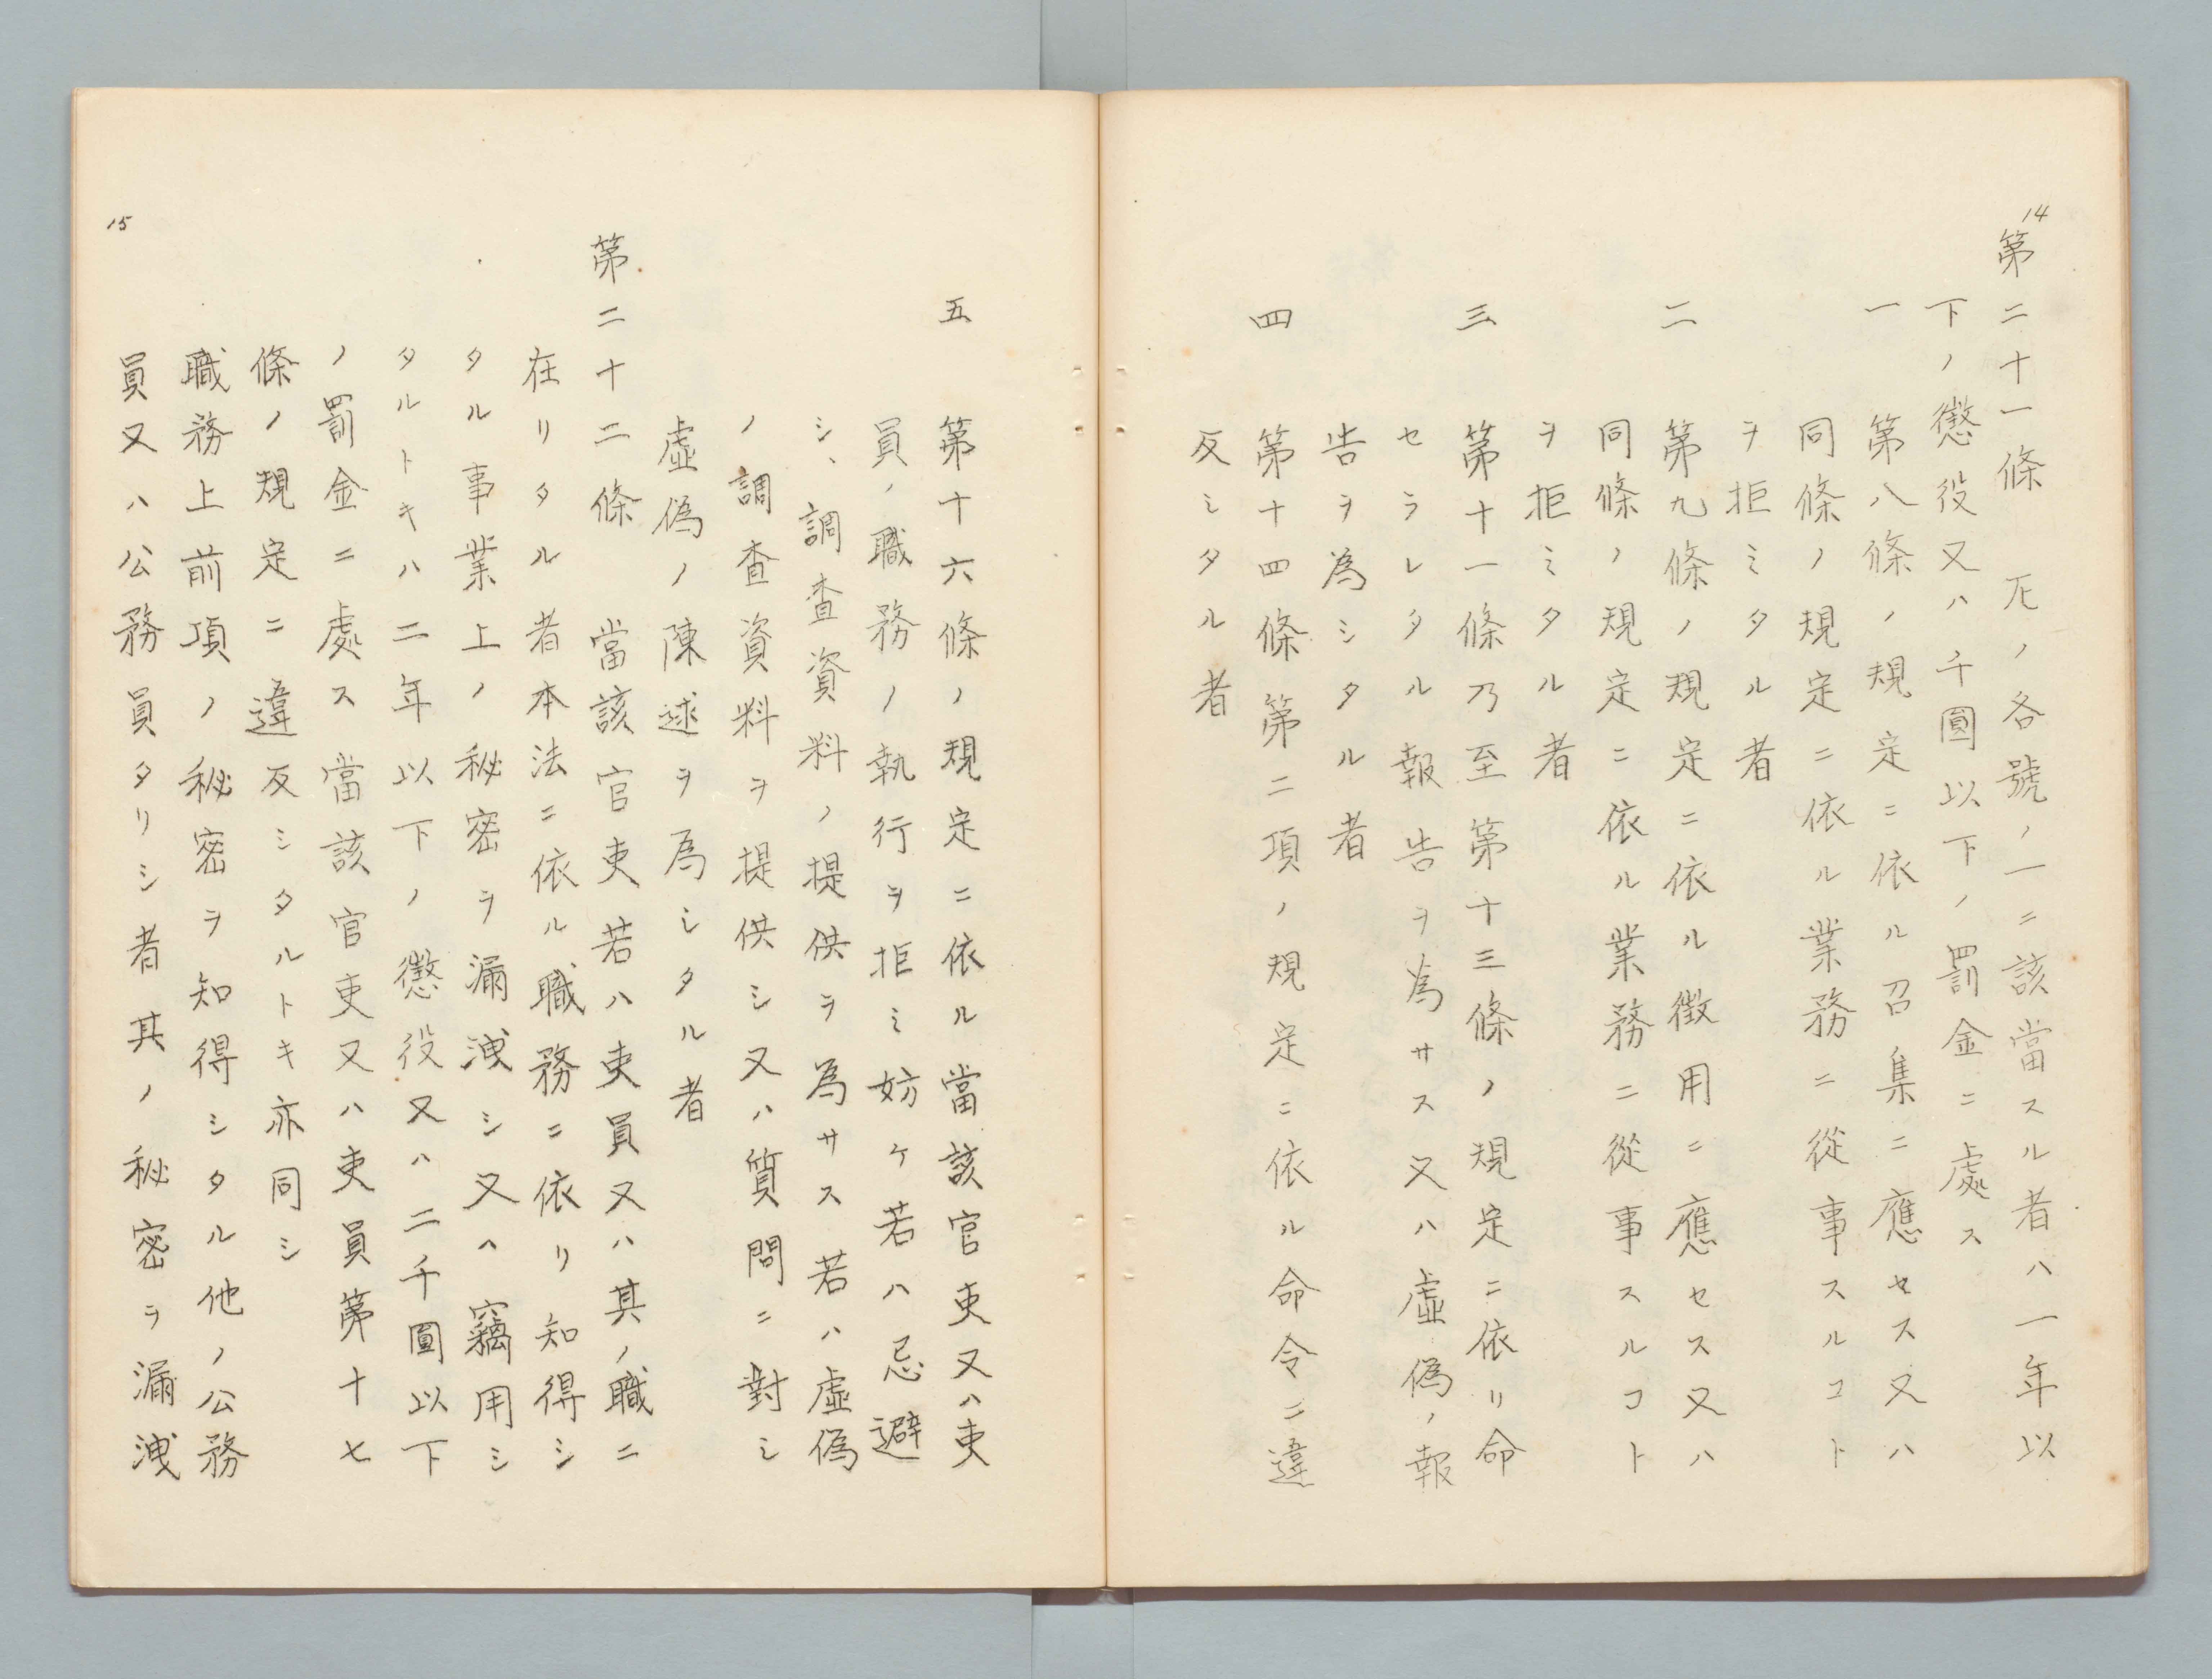 14
第二十一條　左ノ各號ノ一ニ該當スル者ハ一年以
下ノ懲役又ハ千圓以下ノ罰金ニ處ス
一　第八條ノ規定ニ依ル召集ニ應セス又ハ
同條ノ規定ニ依ル業務ニ從事スルコト
ヲ拒ミタル者
二　第九條ノ規定ニ依ル徴用ニ應セス又ハ
同條ノ規定ニ依ル業務ニ從事スルコト
ヲ拒ミタル者
三　第十一條乃至第十三條ノ規定ニ依リ命
セラレタル報告ヲ為サス又ハ虛偽ノ報
告ヲ為シタル者
四　第十四條第二項ノ規定ニ依ル命令ニ違
反シタル者
五　第十六條ノ規定ニ依ル當該官吏又ハ吏
員ノ職務ノ執行ヲ拒ミ妨ケ若ハ忌避
シ、調査資料ノ提供ヲ為サス若ハ虛偽
ノ調査資料ヲ提供シ又ハ質問ニ對シ
虛偽ノ陳述ヲ為シタル者
第二十二條　當該官吏若ハ吏員又ハ其ノ職ニ
在リタル者本法ニ依ル職務ニ依リ知得シ
タル事業上ノ秘密ヲ漏洩シ又ハ竊用シ
タルトキハ二年以下ノ懲役又ハ二千圓以下
ノ罰金ニ處ス當該官吏又ハ吏員第十七
條ノ規定ニ違反シタルトキ亦同シ
職務上前項ノ秘密ヲ知得シタル他ノ公務
員又ハ公務員タリシ者其ノ秘密ヲ漏洩
15